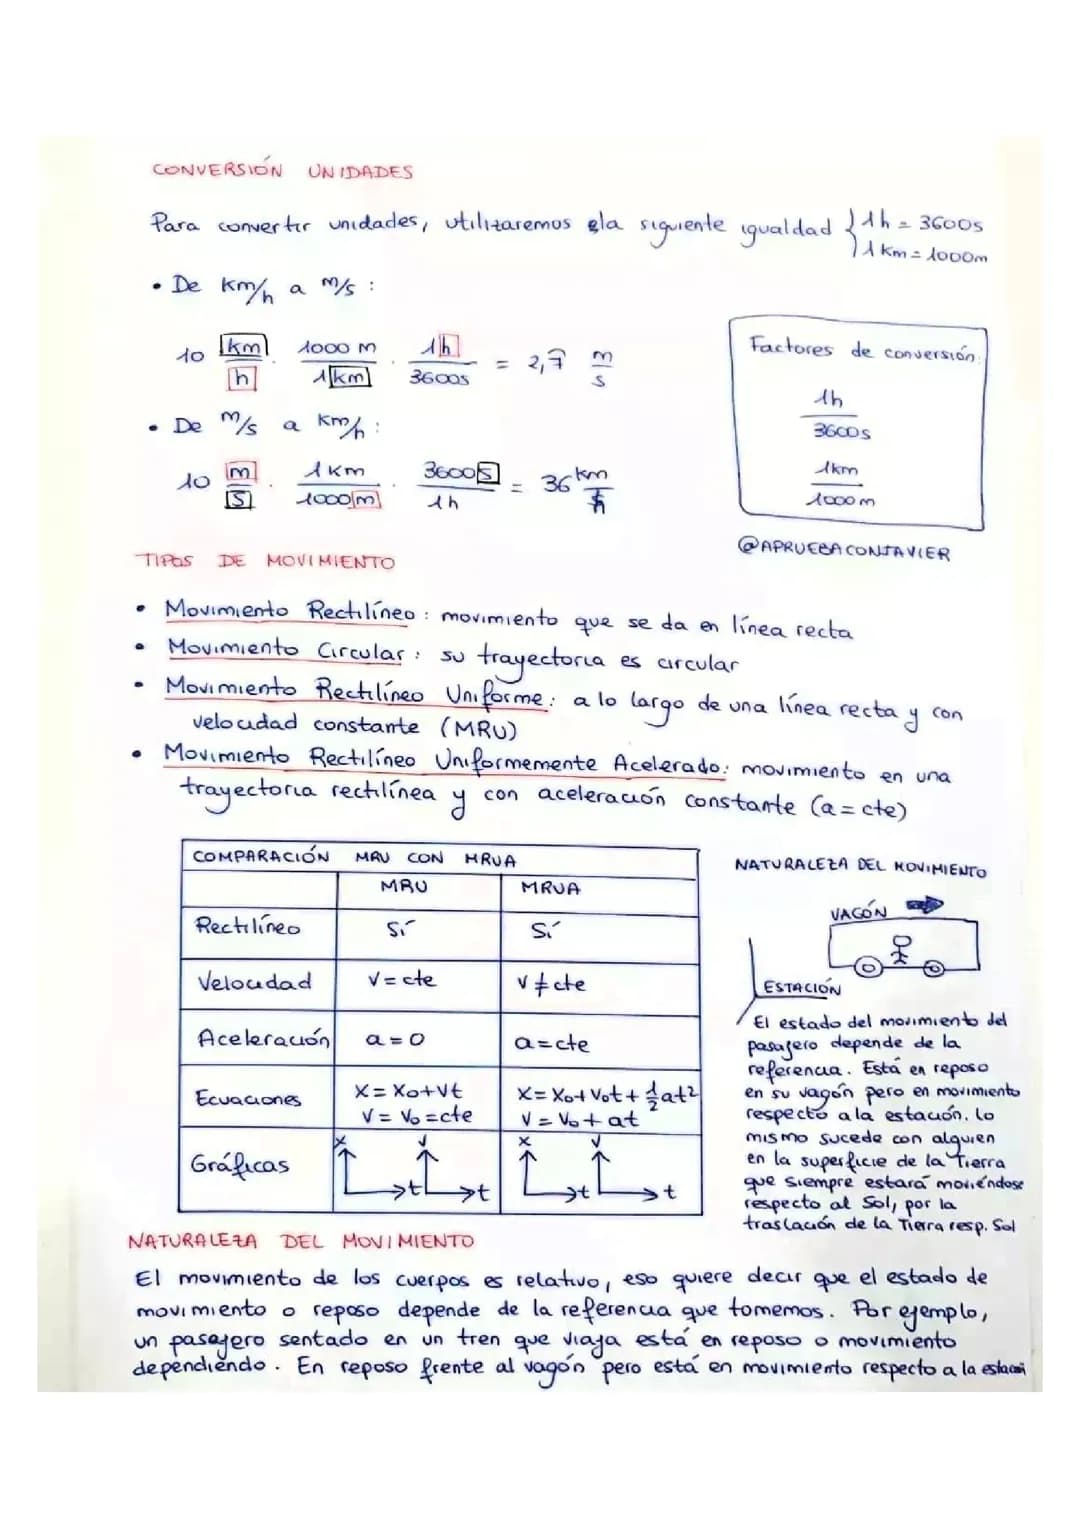 CONVERSIÓN UNIDADES
Para convertir unidades, utilizaremos la siguiente igualdad { 1h = 3600s
1 km = 1000m
• De km/h a m/s :
10 km/h · 1000 m/1 km · 1h/3600s = 2,7 m/s
• De m/s a km/h :
10 m/s · 1 km/1000 m · 3600 s/1h = 36 km/h
Factores de conversión:
1h/3600s
1km/1000m
@APRUEBACONJAVIER
TIPOS DE MOVIMIENTO
• Movimiento Rectilíneo : movimiento que se da en línea recta
• Movimiento Circular : su trayectoria es circular
• Movimiento Rectilíneo Uniforme : a lo largo de una línea recta y con
velocidad constante (MRU)
• Movimiento Rectilíneo Uniformemente Acelerado : movimiento en una
trayectoria rectilínea y con aceleración constante (a = cte)
COMPARACIÓN MRU CON MRUA
MRU MRUA
Rectilíneo Sí Sí
Velocidad v = cte v ≠ cte
Aceleración a = 0 a = cte
Ecuaciones x = x₀ + vt x = x₀ + v₀t + ½at²
v = v₀ = cte v = v₀ + at
Gráficas x t v t x t v t
NATURALEZA DEL MOVIMIENTO
VAGÓN
ESTACIÓN
El estado del movimiento del
pasajero depende de la
referencia. Está en reposo
en su vagón pero en movimiento
respecto a la estación. Lo
mismo sucede con alguien
en la superficie de la Tierra
que siempre estará moviéndose
respecto al Sol, por la
traslación de la Tierra resp. Sol
NATURALEZA DEL MOVIMIENTO
El movimiento de los cuerpos es relativo, eso quiere decir que el estado de
movimiento o reposo depende de la referencia que tomemos. Por ejemplo,
un pasajero sentado en un tren que viaja está en reposo o movimiento
dependiendo. En reposo frente al vagón pero está en movimiento respecto a la